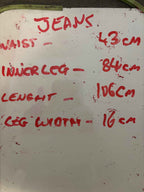 JEANS
WAIST - 43 CM
INNER LEG - 84 CM
LENGHT - 106 CM
LEG WIDTH - 16 CM